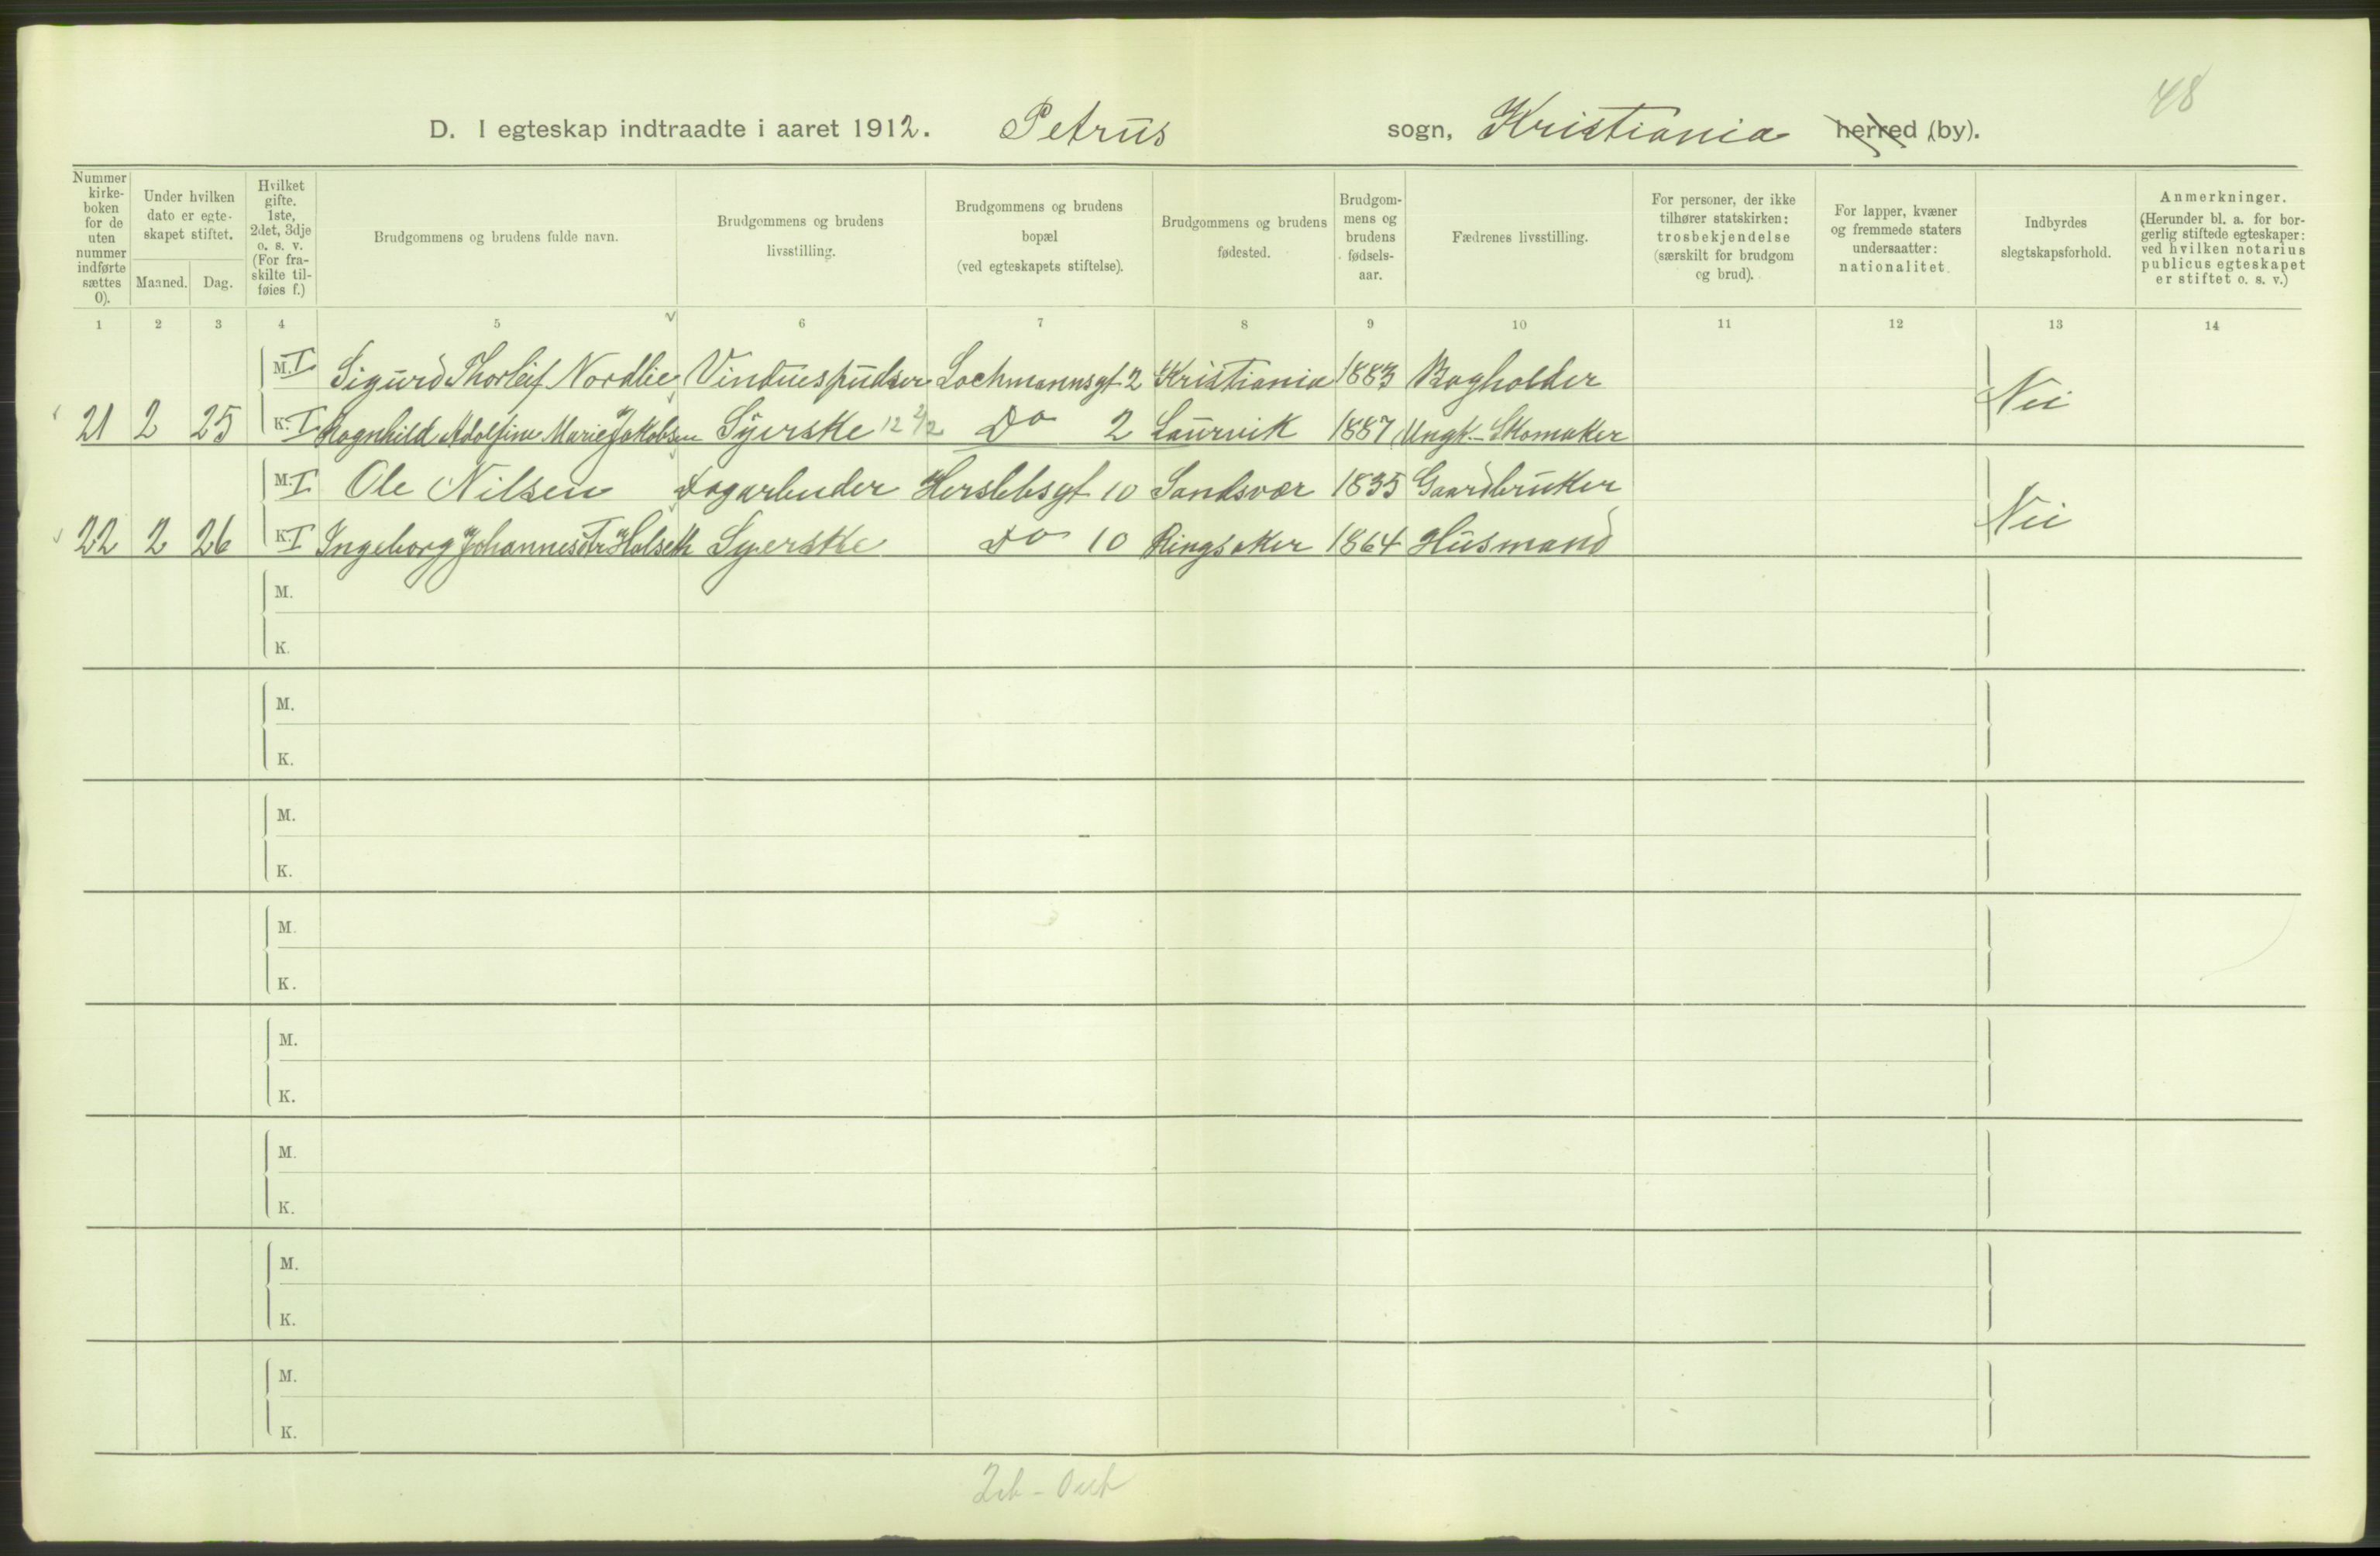 48
D. I egteskap indtraadte i aaret 1912. Petrus sogn, Kristiania herred (by).
Nummer kirke-boken for de uten nummer indførte sættes 0).
Under hvilken dato er egte-skapet stiftet.
Maaned. Dag.
Hvilket gifte. 1ste, 2det, 3dje o. s. v. (For fra-skilte til-føies f.)
Brudgommens og brudens fulde navn.
Brudgommens og brudens livsstilling.
Brudgommens og brudens bopæl (ved egteskapets stiftelse).
Brudgommens og brudens fødested.
Brudgom-mens og brudens fødsels-aar.
Fædrenes livsstilling.
For personer, der ikke tilhører statskirken: trosbekjendelse (særskilt for brudgom og brud).
For lapper, kvæner og fremmede staters undersaatter: nationalitet.
Indbyrdes slegtskapsforhold.
Anmerkninger. (Herunder bl. a. for bor-gerlig stiftede egteskaper: ved hvilken notarius publicus egteskapet er stiftet o. s. v.)
1 2 3 4 5 6 7 8 9 10 11 12 13 14
M. I Sigurd Thorleif Nordlie Vinduespudser Lochmannsgt 2 Kristiania 1883 Bogholder
Nei
21 2 25 K. I Ragnhild Adolfine Marie Jakobsen Syerske 12 2/2 Do 2 Laurvik 1887 Ungk. Skomaker
M. I Ole Nilsen Dagarbeider Herslebsgt 10 Sandsvær 1835 Gaardbruker
Nei
22 2 26 K. I Ingeborg Johannesdtr Holseth Syerske Do 10 Ringsaker 1864 Husmand
M.
K.
M.
K.
M.
K.
M.
K.
M.
K.
M.
K.
M.
K.
M.
K.